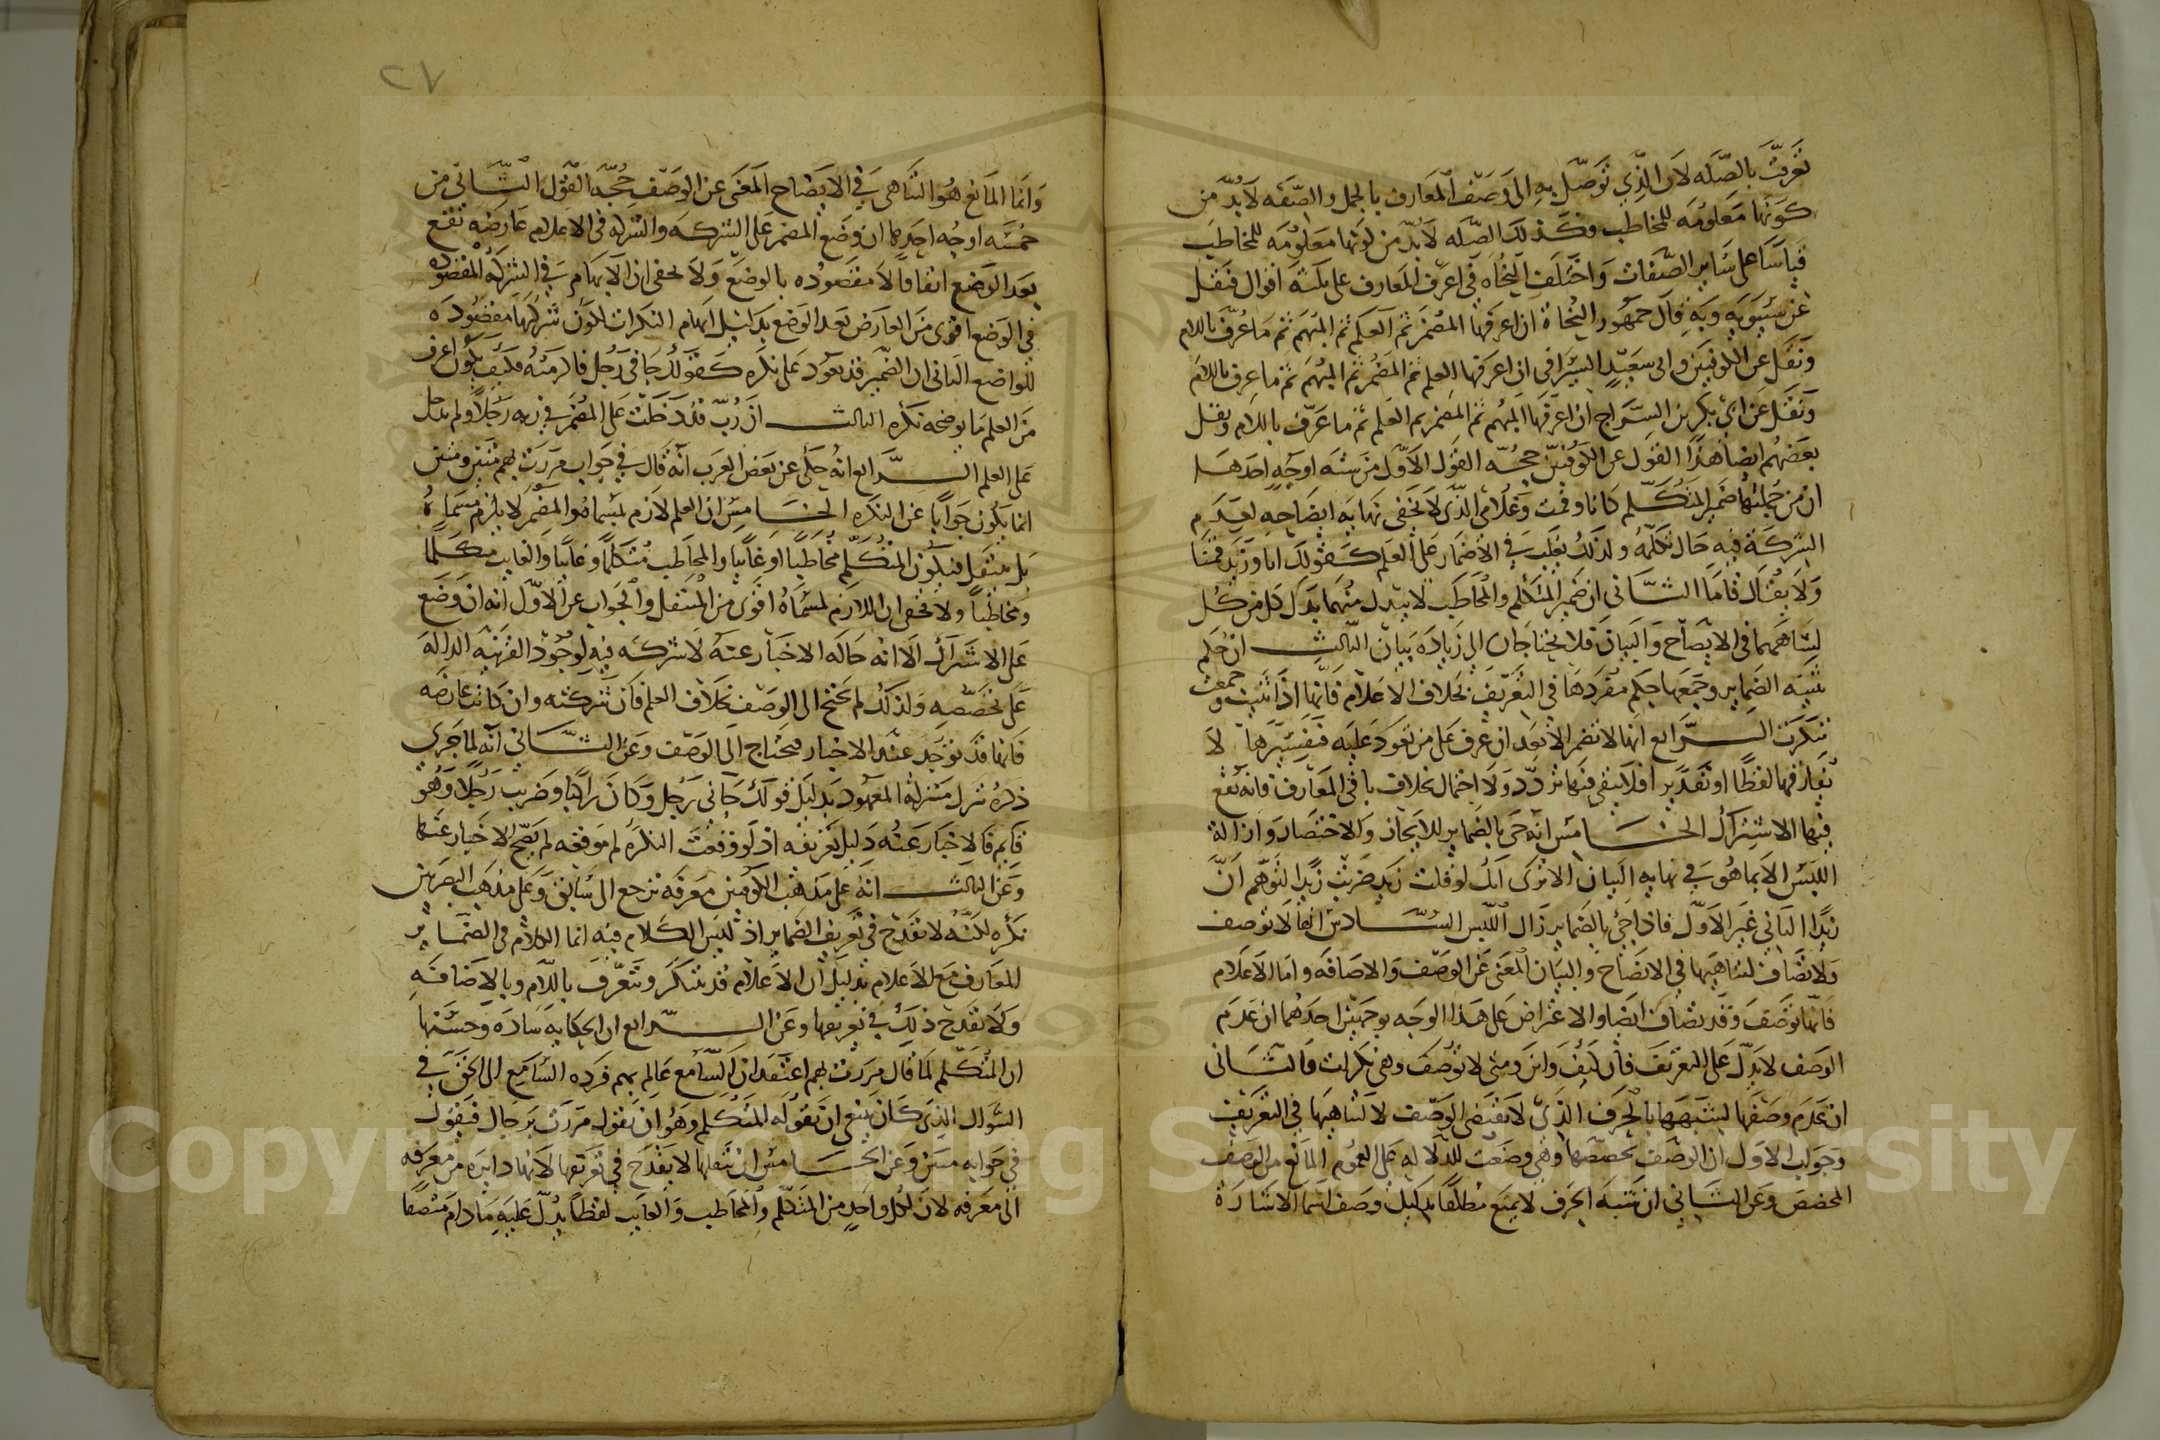 تعرفت بالصله لان الذي توصل به الى وصف المعارف بالجمل والصفه لا بد من
كونها معلومه للمخاطب فكذلك الصله لا بد من كونها معلومه للمخاطب
قياسا على ساير الصفات واختلف النحاه في اعرف المعارف على ثلثه اقوال فنقل
عن سيبويه وبه قال جمهور النحاة ان اعرفها المضمر ثم العلم ثم المبهم ثم ما عرف باللام
ونقل عن الكوفيين وابي سعيد السيرافي ان اعرفها العلم ثم المضمر ثم المبهم ثم ما عرف باللام
ونقل عن ابي بكر بن السراج ان اعرفها المبهم ثم المضمر ثم العلم ثم ما عرف باللام ونقل
بعضهم ايضا هذا القول عن الكوفيين حجه القول الاول من سته اوجه احدها
ان من جملتها ضمير المتكلم كانا وقمت وغلامي الذي لا يخفى نهايه ايضاحه لعدم
الشركة فيه حال تكلمه ولذلك يغلب في الاضمار على العلم كقولك انا وزيد قمنا
ولا يقال قاما الثاني ان ضمير المتكلم والمخاطب لا يبدل منهما بدل كل من كل
لتناهيهما في الايضاح والبيان فلا يحتاجان الى زيادة بيان الثالث ان حكم
تثنيه الضماير وجمعها حكم مفردها في التعريف بخلاف الاعلام فانها اذا ثنيت وجمعت
تنكرت الرابع انها لا تضمر الا بعد ان عرف على من تعود عليه فتفسيرها لا
يفارقها لفظا او تقديرا فلا يبقى فيها تردد ولا احتمال بخلاف باقي المعارف فانه يقع
فيها الاشتراك الخامس انه جي بالضماير للايجاز والاختصار وازالة
اللبس الا بما هو في نهايه البيان الا ترى انك لو قلت زيد ضربت زيدا لتوهم ان
زيدا الثاني غير الاول فاذا جئ بالضماير زال اللبس السادس انها لا توصف
ولا تضاف لتناهيها في الايضاح والبيان المغنى عن الوصف والاضافه واما الاعلام
فانها توصف وقد تضاف ايضا والاعتراض على هذا الوجه بوجهين احدهما ان عدم
الوصف لا يدل على التعريف فان كيف واين ومتى لا توصف وهي نكرات والثاني
ان عدم وصفها لشبهها بالحرف الذي لا يقتضى الوصف لا لتناهيها في التعريف
وجواب الاول ان الوصف يخصصها وهي وضعت للدلاله على العموم المانع من الوصف
المخصص وعن الثاني ان شبه الحرف لا يمنع مطلقا بدليل وصف اسما الاشارة
٢٧
وانما المانع هو التناهي في الايضاح المغنى عن الوصف حجه القول الثاني من
خمسه اوجه احدها ان وضع المضمر على الشركه والشركه في الاعلام عارضه تقع
بعد الوضع اتفاقا لا مقصوده بالوضع ولا يخفى ان الابهام في الشركه المقصوده
في الوضع اقوى من العارض بعد الوضع بدليل ابهام النكرات لكون شركتها مقصوده
للواضع الثاني ان الضمير قد يعود على نكره كقولك جاني رجل فاكرمته فكيف يكون اعرف
من العلم ما يوضحه نكره الثالث ان رب قد دخلت على المضمر في ربه رجلا ولم تدخل
على العلم الرابع انه حكى عن بعض العرب انه قال في جواب مررت بهم منين ومنين
انما يكون جوابا عن النكره الخامس ان العلم لازم لمسماه والمضمر لا يلزم مسماه
بل ينتقل فيكون المتكلم مخاطبا او غايبا والمخاطب متكلما وغايبا والغايب متكلما
ومخاطبا ولا يخفى ان اللازم لمسماه اقوى من المنتقل والجواب عن الاول انه ان وضع
على الاشتراك الا انه حاله الاخبار عنه لا شركه فيه لوجود القرينه الدالة
على تخصصه ولذلك لم يحتج الى الوصف بخلاف العلم فان شركته وان كانت عارضه
فانها قد توجد عند الاخبار فيحتاج الى الوصف وعن الثاني انه لما جرى
ذكره نزل منزلة المعهود بدليل قولك جاني رجل وكان راكبا وضربت رجلا وهو
قايم فالاخبار عنه دليل تعريفه اذ لو وقعت النكره لم موقعه لم يصح الاخبار عنها
وعن الثالث انه على مذهب الكوفيين معرفه ترجع الى سابق وعلى مذهب البصريين
نكره لكنه لا يقدح في تعريف الضماير اذ ليس الكلام فيه انما الكلام في الضماير
المعارف مع الاعلام بدليل ان الاعلام قد تتنكر وتتعرف باللام وبالاضافه
ولا يقدح ذلك في تعريفها وعن الرابع ان الحكايه شاذه وحسنها
ان المتكلم لما قال مررت بهم اعتقد ان السامع عالم بهم فرده السامع الى الحق في
السوال الذي كان ينبغي ان يقوله المتكلم وهو ان يقول مررت برجال فيقول
في جوابه منين وعن الخامس ان تنقلها لا يقدح في تعريفها لانها دايره من معرفه
الى معرفه لان لكل واحد من المتكلم والمخاطب والغايب لفظا يدل عليه ما دام متصفا
Copyright © King Saud University